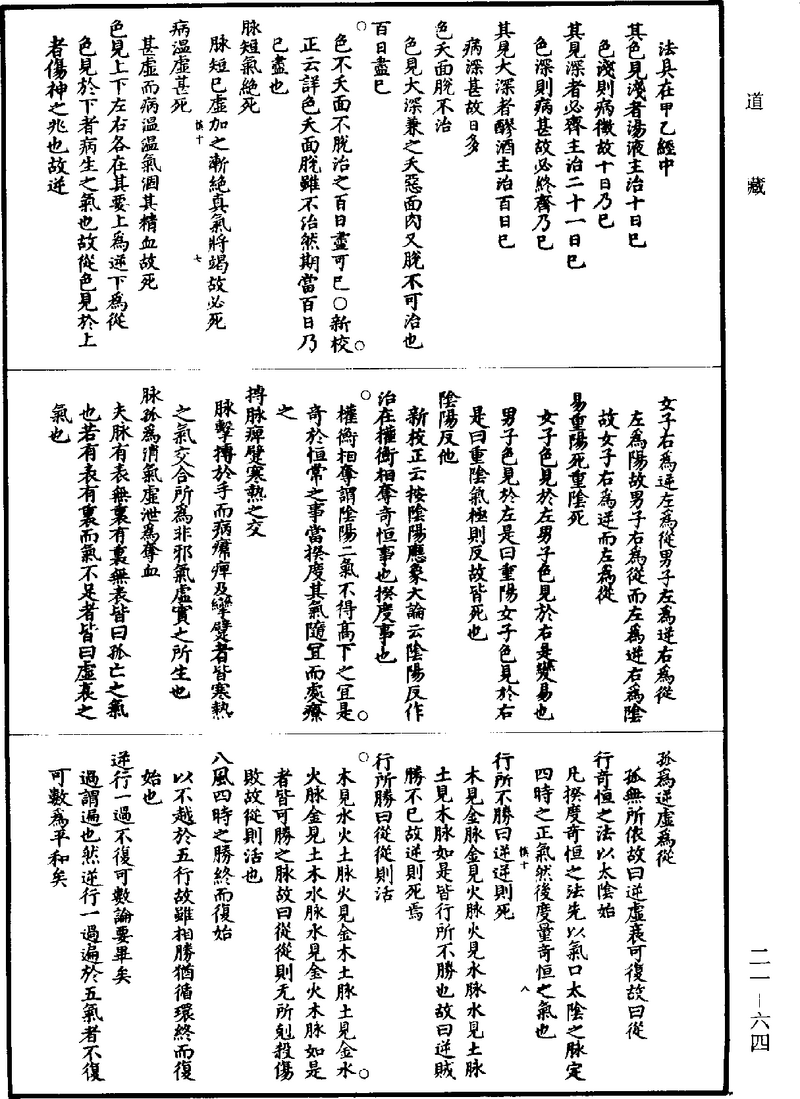 道藏
法具在甲乙經中
其色見淺者湯液主治十日已
色淺則病微故十日乃已
其見深者必齊主治二十一日已
色深則病甚故必終齊乃已
其見大深者醪酒主治百日已
病深甚故日多
色夭面脫不治
色見大深兼之夭惡面肉又脫不可治也
百日盡已
色不夭面不脫治之百日盡可已○新校
正云詳色夭面脫雖不治然期當百日乃
已盡也
脉短氣絕死
脉短已虛加之漸絕真氣將竭故必死
慎十 七
病溫虛甚死
甚虛而病溫溫氣涸其精血故死
色見上下左右各在其要上爲逆下爲從
色見於下者病生之氣也故從色見於上
者傷神之兆也故逆
女子右爲逆左爲從男子左爲逆右爲從
左爲陽故男子右爲從而左爲逆右爲陰
故女子右爲逆而左爲從
易重陽死重陰死
女子色見於左男子色見於右是變易也
男子色見於左是曰重陽女子色見於右
是曰重陰氣極則反故皆死也
陰陽反他
新校正云按陰陽應象大論云陰陽反作
治在權衡相奪奇恒事也揆度事也
權衡相奪謂陰陽二氣不得高下之宜是
奇於恒常之事當揆度其氣隨宜而處療
之
搏脉痹躄寒熱之交
脉擊搏於手而病瘰痹及攣躄者皆寒熱
之氣交合所爲非邪氣虛實之所生也
脉孤爲消氣虛泄爲奪血
夫脉有表無裏有裏無表皆曰孤亡之氣
也若有表有裏而氣不足者皆曰虛衰之
氣也
孤爲逆虛爲從
孤無所依故曰逆虛衰可復故曰從
行奇恒之法以太陰始
凡揆度奇恒之法先以氣口太陰之脉定
四時之正氣然後度量奇恒之氣也
慎十 八
行所不勝曰逆逆則死
木見金脉金見火脉火見水脉水見土脉
土見木脉如是皆行所不勝也故曰逆賊
勝不已故逆則死焉
行所勝曰從從則活
木見水火土脉火見金木土脉土見金水
火脉金見土木水脉水見金火木脉如是
者皆可勝之脉故曰從從則无所尅殺傷
敗故從則活也
八風四時之勝終而復始
以不越於五行故雖相勝猶循環終而復
始也
逆行一過不復可數論要畢矣
過謂遍也然逆行一過遍於五氣者不復
可數爲平和矣
二一－六四